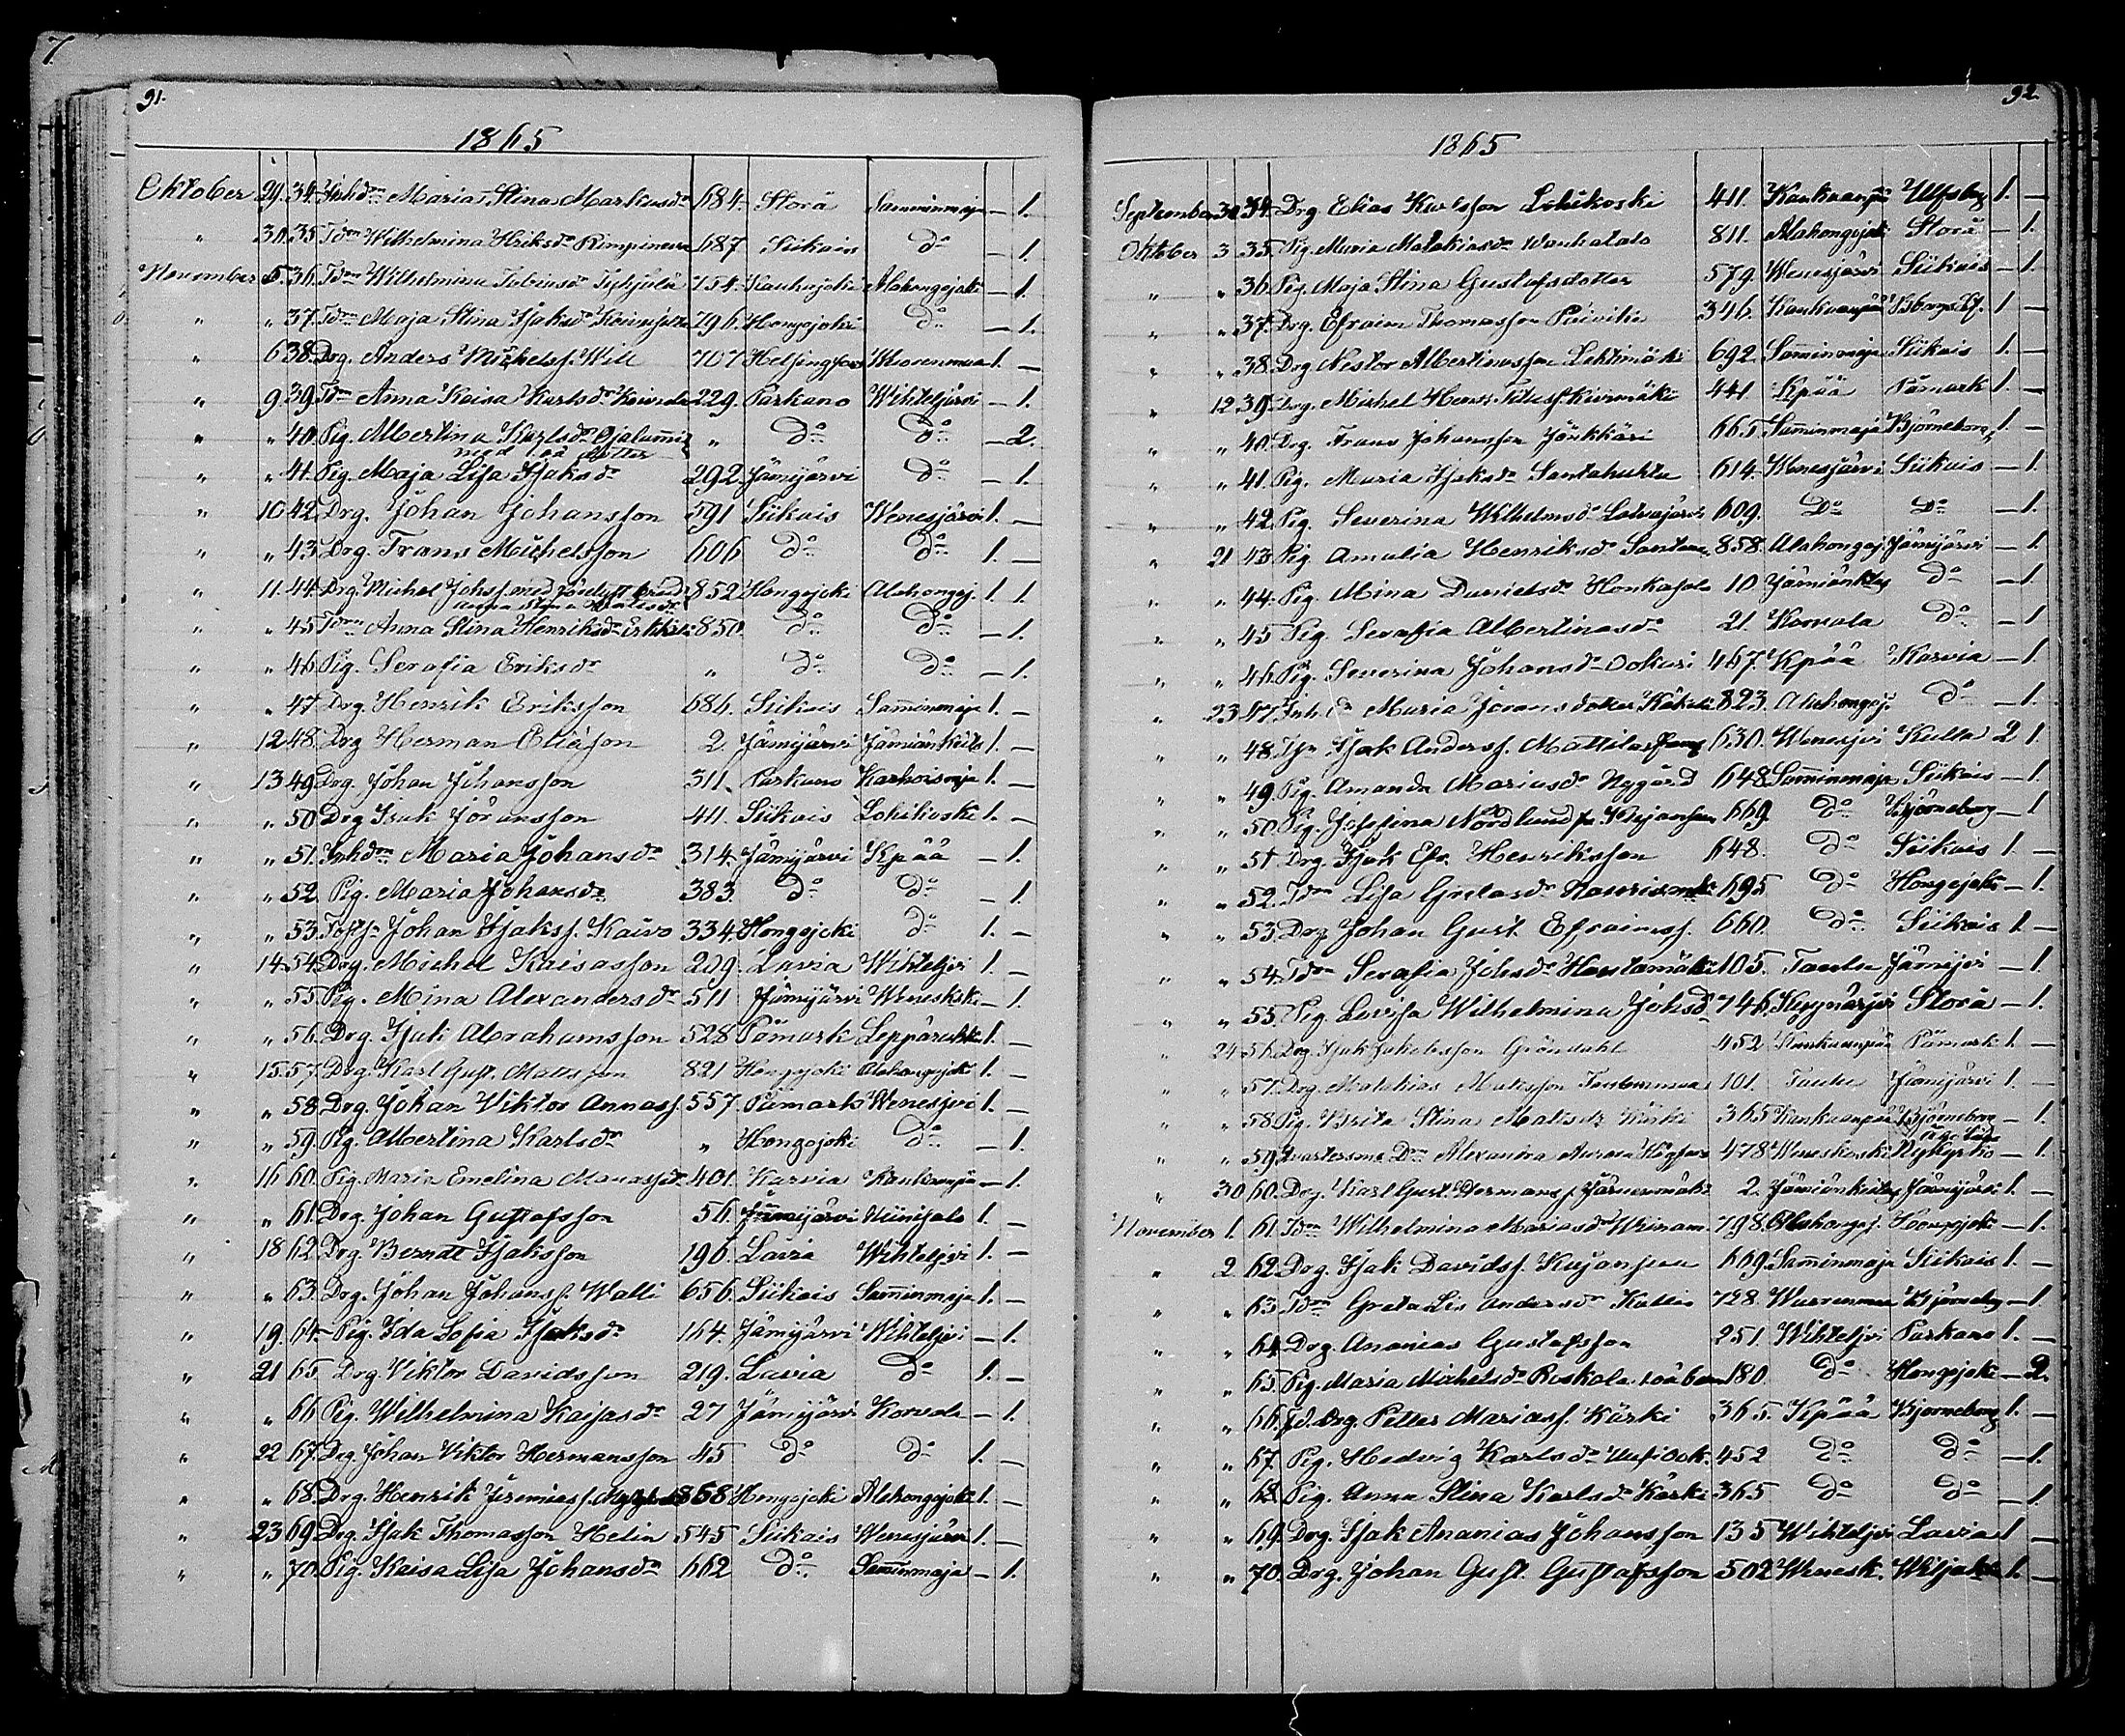 7.
91.
1865
Oktober 29. 34. Inhdrn Maria Stina Markusdr 684. Storå Samminmaja — 1.
" 30. 35. Tdrn Wilhelmina Hriksdr 687 Siikais do — 1.
November 5. 36. Tdrn Wilhelmina Tobiasdr 754. Kauhajoki Alahongojoki — 1.
" " 37. Tdrn Maja Stina Isaksdr 796. Hongojoki do — 1.
" 6 38. Drg. Anders Mickelss. Will 707 Helsingfors Worenmaa 1. —
" 9. 39. Tdrn Anna Kaisa Karlsdr 229. Parkano Wihteljärvi — 1.
" " 40. Pig. Albertina Karlsdr Ojalammi " do do — 2.
med oä dotter
" " 41. Pig. Maja Lisa Isaksdr 292. Jämijärvi do — 1.
" 10 42. Drg. Johan Johansson 591 Siikais Wenesjärvi 1. —
" " 43. Drg. Frans Michelsson 606 do do 1. —
" 11. 44. Drg. Michel Johss. med 852 Hongojoki Alahongoj. 1. 1.
" " 45 Tdrn Anna Stina Henriksdr 850. do do — 1.
" " 46. Pig. Serafia Eriksdr " do do — 1.
" " 47 Drg. Henrik Eriksson 686. Siikais Samminmaja 1. —
" 12 48. Drg Herman Eliasson 2. Jämijärvi Jämiänkeids 1. —
" 13 49. Drg. Johan Johansson 311. Parkano Karhoismja 1. —
" " 50 Drg Isak Joransson 411. Siikais Lohikoski 1. —
" " 51. Inhdrn Maria Johansdr 314. Jämijärvi Kpää — 1.
" " 52. Pig. Maria Johansdr 383. do do — 1
" " 53. Johan Isakss. Kaivo 334. Hongojoki do 1. —
" 14. 54. Drg. Michel Kaisasson 209. Lavia Wihteljvi 1. —
" " 55 Pig. Mina Alexandersdr 511 Jämijärvi Wenesksk — 1.
" " 56. Drg. Isak Abrahamsson 528 Påmark 1. —
" 15. 57. Drg. Karl Gust. Matsson 821 Hongojoki Alahongojoki 1. —
" " 58 Drg. Johan Viktor Annass. 557. Påmark Wenesjvi 1. —
" " 59. Pig. Albertina Karlsdr " Hongojoki do — 1.
" 16 60. Pig. Maria Emelina Manassdr 401. Karvia Kankaanpä — 1.
" " 61. Drg. Johan Gustafsson 56. Jämijärvi Niinisalo 1. —
" 18 62. Drg. Berndt Isaksson 196. Lavia Wihteljvi 1. —
" " 63. Drg. Johan Johanss. Walli 656. Siikais Samminmaja 1. —
" 19. 64. Pig. Ida Sofia Isaksdr 164. Jämijärvi Wihteljvi — 1.
" 21 65 Drg. Viktor Davidsson 219. Lavia do 1. —
" " 66 Pig. Wilhelmina Kaisasdr 27 Jämijärvi Korvala — 1.
" 22 67. Drg. Johan Viktor Hermansson 45 do do 1. —
" " 68. Drg. Henrik Jeremiass. 868 Hongojoki Alahongojoki 1. —
" 23 69 Drg. Isak Thomasson Helin 545 Siikais Wenesjärvi 1. —
" " 70. Pig. Kaisa Lisa Johansdr 662 do Samminmaja — 1.
92
1865
September 30 34. Drg. Elias Karlsson Lohikoski 411. Kankaanpää Ulfsby 1. —
Oktober 3 35. Pig. Maria Malakiasdr Wanhatalo 811. Alahongojoki Storå — 1.
" " 36. Pig. Maja Stina Gustafsdotter 579. Wenesjärvi Siikais — 1.
" " 37. Drg. Efraim Thomasson Päivike 346. Kankaanpää 1 —
" " 38. Drg Nestor Albertinasson Lehtimäki 692. Samminmaja Siikais 1. —
" 12 39. Drg. Michel Henr. 441 Kpää Påmark 1. —
" " 40. Drg. Frans Johansson 665 Samminmaja Björneborg 1. —
" " 41. Pig. Maria Isaksdr Santahuhta 614. Wenesjärvi Siikais — 1.
" " 42. Pig. Severina Wilhelmsdr 609. do do — 1.
" 21 43 Pig. Amalia Henriksdr 858. Alahongoj. Jämijärvi — 1.
" " 44. Pig. Mina Danielsdr Honkasalo 10 Jämiänkds do — 1.
" " 45 Pig Serafia Albertinasdr 21. Korvala do — 1
" " 46. Pig. Severina Johansdr Ookari 467. Kpää Karvia — 1.
" 23 47. Inh.dr Maria Joransdotter 823. Alahongoj. do — 1.
" " 48. Isak Anderss. Mattila 630. Wenesjvi Kulla 2 1
" " 49. Pig. Amanda Mariasdr Nygård 648 Samminmaja Siikais — 1.
" " 50. Pig. Josefina Nordlund 669 do Björneborg — 1
" " 51 Drg Isak Efr. Henriksson 648. do Siikais 1. —
" " 52. Tdrn Lisa Gretasdr 695 do Hongojoki — 1.
" " 53. Drg Johan Gust. Efraimss. 660. do Siikais 1. —
" " 54. Tdrn Serafia Johsdr 105. Jämijvi — 1.
" " 55. Pig Lovisa Wilhelmina Johsdr 746. Storå — 1.
" 24 56. Drg. Isak Gröndahl 452 Kankaanpää Påmark 1. —
" " 57. Drg. Malakias Matsson 101. Jämijärvi 1. —
" " 58 Pig. Brita Stina Matisdr Kärki 365 Kankaanpää Björneborg — 1.
" " 59. Alexandra Aurora 478 Weneskoski Nykyrko — 1.
" 30 60. Drg. Karl Gust. Hermanss. 2. Jämiänkeids Jämijärvi 1. —
November 1. 61. Tdrn Wilhelmina Mariasdr 798. Alahongoj. Hongojoki — 1.
" 2 62. Drg. Isak Davidss. Kujanpää 669 Samminmaja Siikais 1. —
" " 63 Tdrn Greta Lis Andersdr Kallio 728. Worrenmaa Björneborg — 1.
" " 64 Drg. Ananias Gustafsson 251. Wihteljvi Parkano 1. —
" " 65. Pig. Maria Michelsdr Roskala 180 do Hongojoki — 2.
" " 66. Drg. Petter Mariass. Kärki 365. Kpää Björneborg 1. —
" " 67. Pig. Hedvig Karlsdr 452 do do — 1.
" " 68. Pig. Anna Stina Karlsdr Kärki 365 do do — 1.
" " 69. Drg. Isak Ananias Johansson 135 Wihteljvi Lavia 1 —
" " 70. Drg. Johan Gust. Gustafsson 502 Wenesk. 1. —